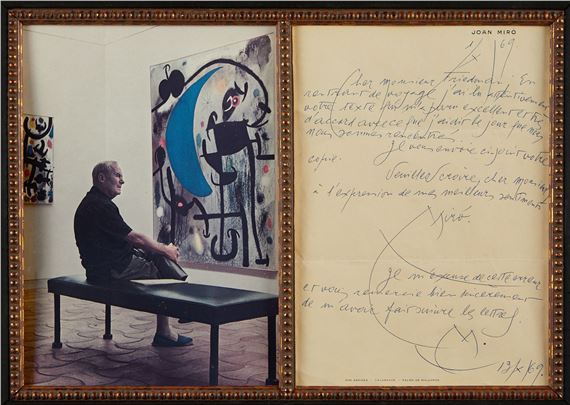 JOAN MIRÓ
1/X/69
Cher monsieur Friedman: En
rentrant de voyage j'ai lu attentivement
votre texte qui m'a paru excellent et très
d'accord avec ce que j'ai dit le jour que nous
nous sommes rencontrés.
Je vous envoie ci-joint votre
copie.
Veuillez croire, cher monsieur
à l'expression de mes meilleurs sentiments
Miró.
Je m'excuse de cette erreur
et vous remercie bien sincèrement
de m'avoir fait suivre les lettres
M.
13/X/69.
SON ABRINES · CALAMAYOR · PALMA DE MALLORCA